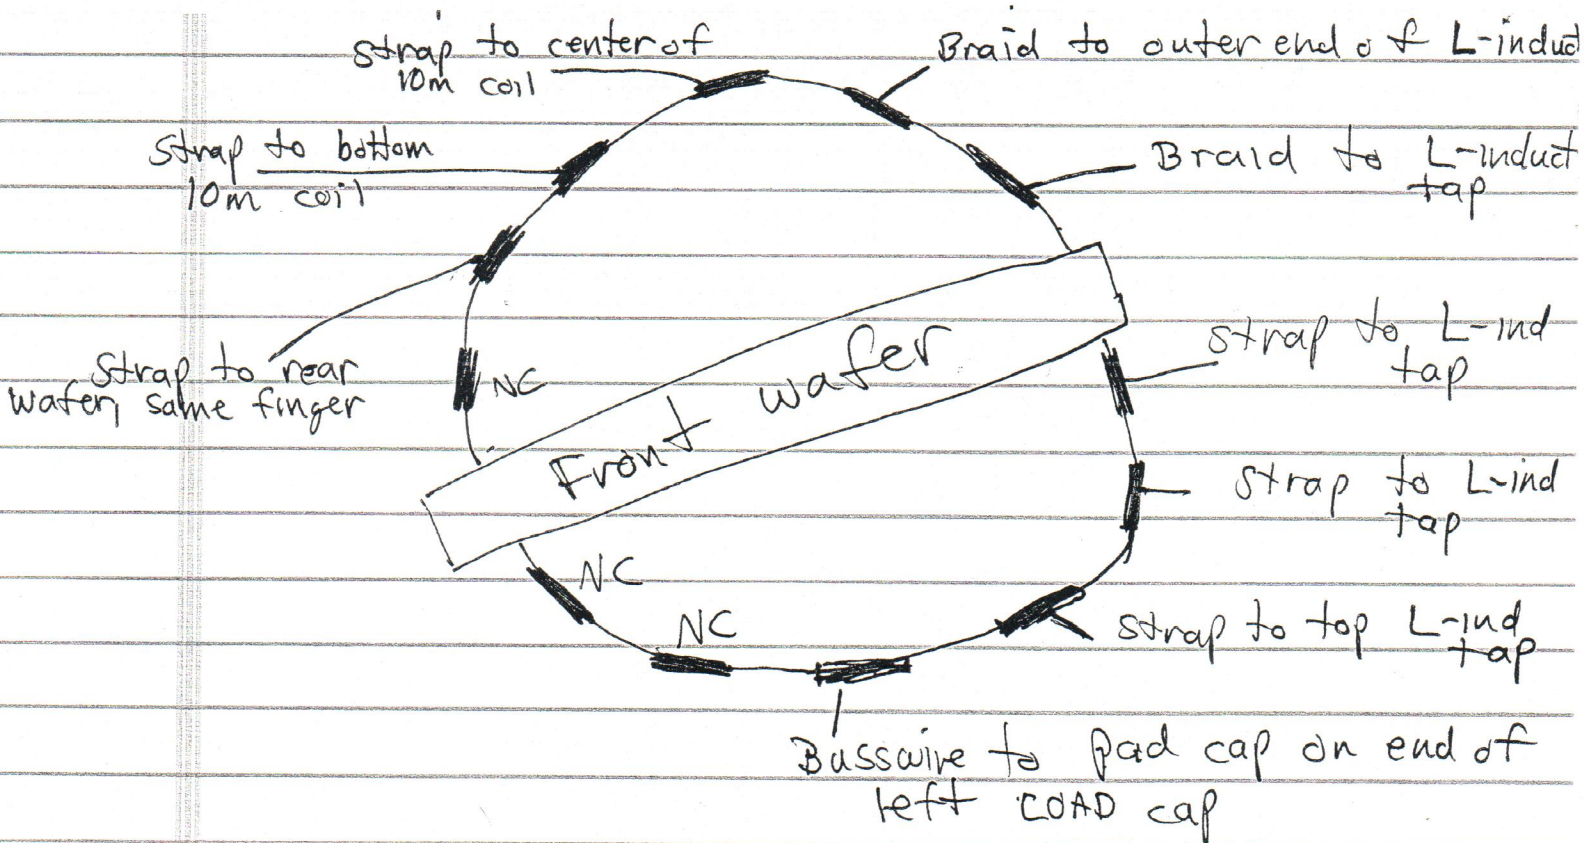 strap to center of
10m coil
Braid to outer end of L-induct
Strap to bottom
10m coil
Braid to L-induct
tap
Strap to rear
wafer, same finger
NC
Front wafer
strap to L-ind
tap
strap to L-ind
tap
NC
NC
strap to top L-ind
tap
Busswire to pad cap on end of
left LOAD cap